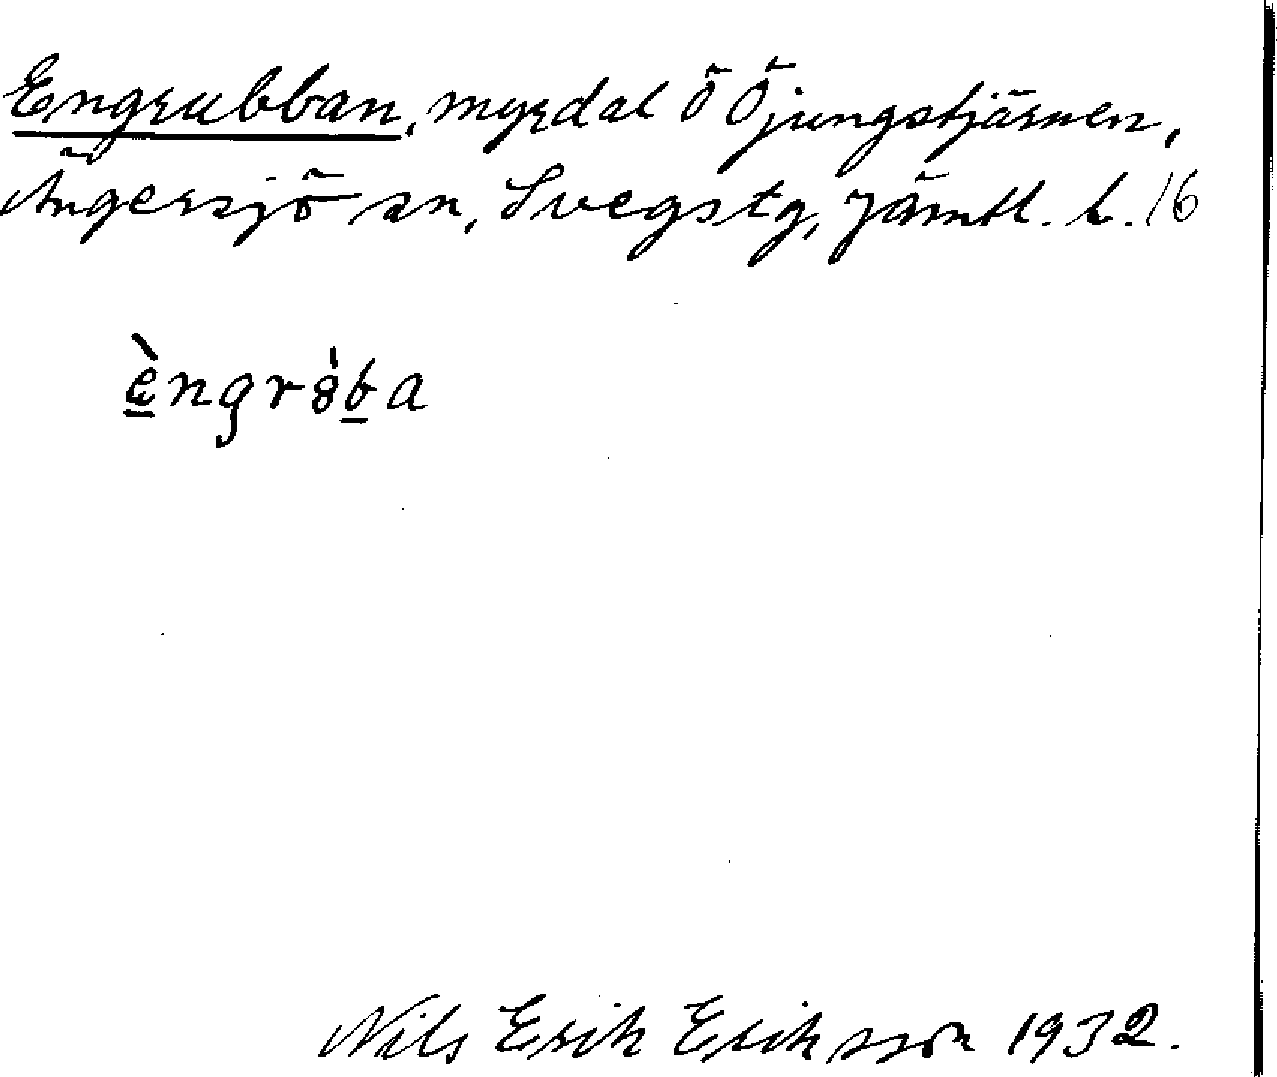 Engrubban, myrdal Ö Öjungstjärnen,
Ängersjö sn, Svegs tg, Jämtl. l. 16
èngr8̀ba
Nils Erik Eriksson 1932.